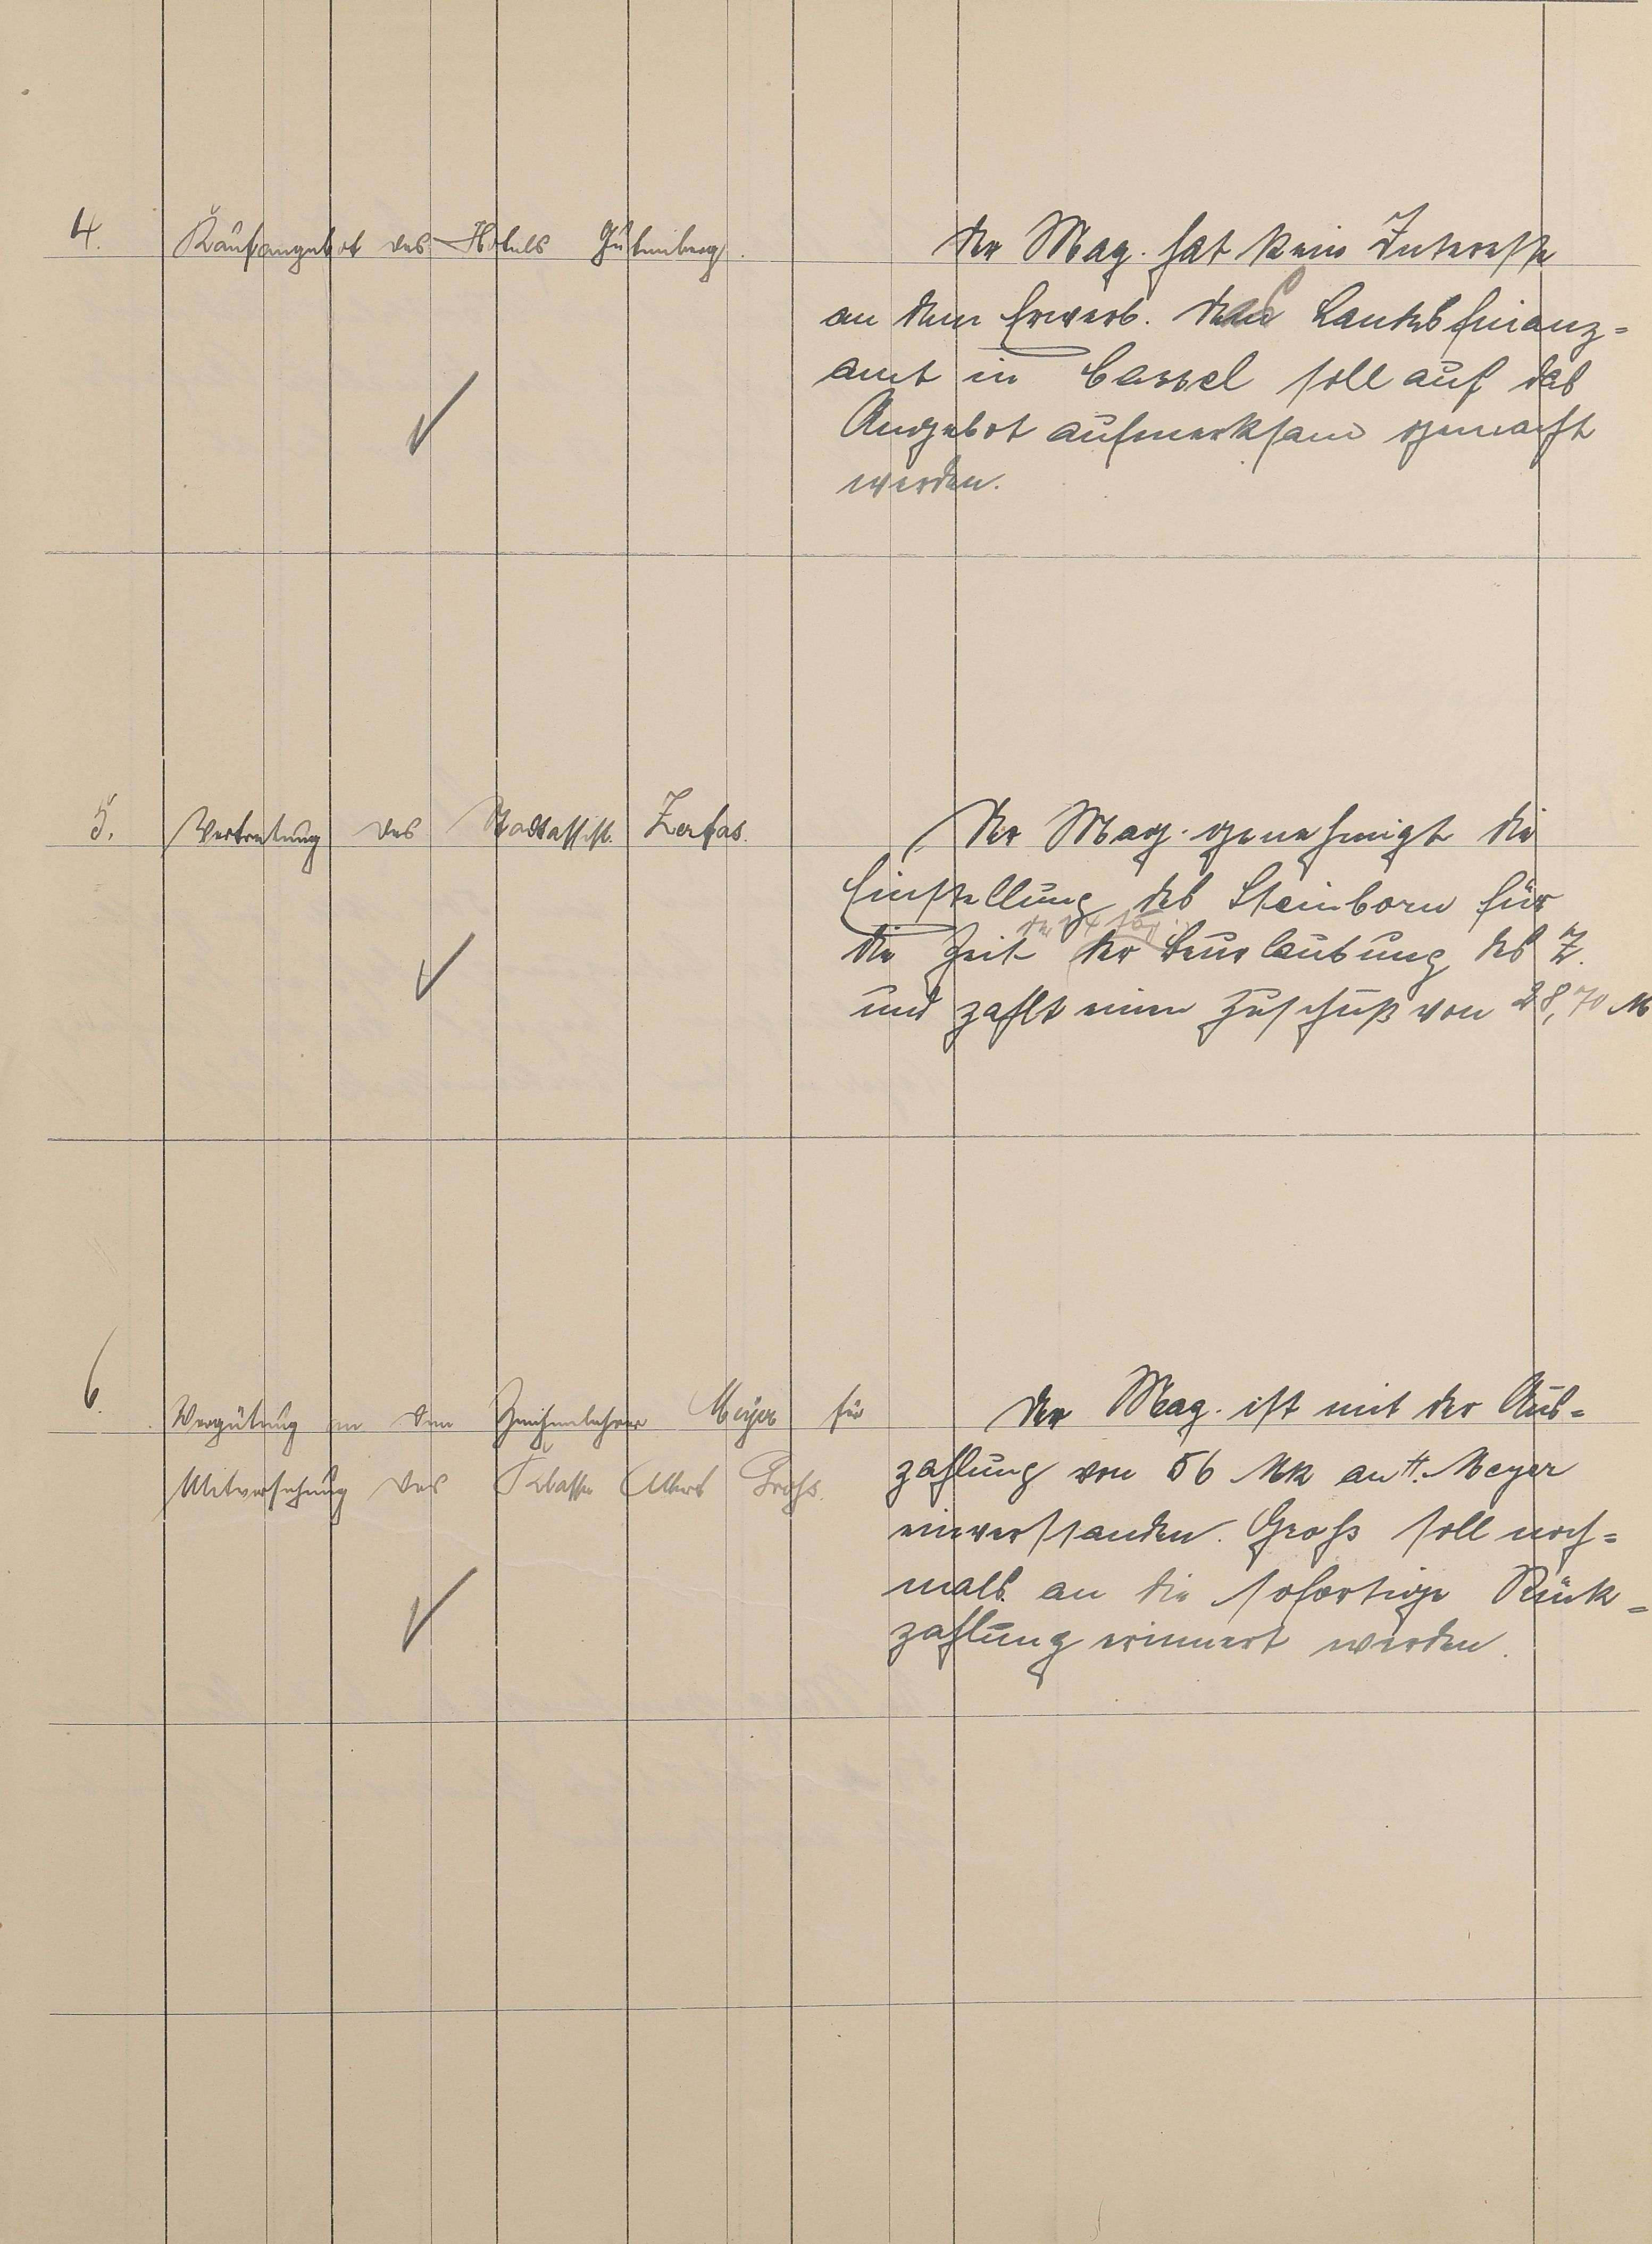 4. Kaufangebot des Hotels Gutenberg.
Der Mag. hat kein Interesse
an dem Erwerb. Das Landesfinanz=
amt in Cassel soll auf das
Angebot aufmerksam gemacht
werden.
5. Vertretung des Stadtassist. Zerfas.
Der Mag. genehmigt die
Einstellung des Steinborn für
der 14 täg.
die Zeit der Beurlaubung des Z.
und zahlt einen Zuschuß von 28,70 M
6. Vergütung an den Zeichenlehrer Meyer für
Mitversehung der Klasse Albert Groß.
Der Mag. ist mit der Aus=
zahlung von 56 Mk an H. Meyer
einverstanden. Groß soll noch=
mals an die sofortige Rück=
zahlung erinnert werden.